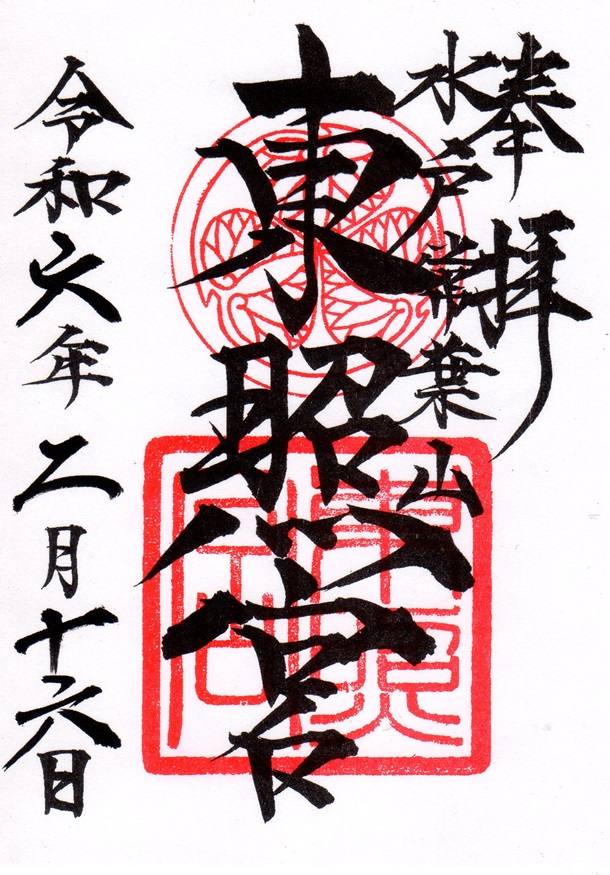 奉拝
水戸常葉山
東照宮
令和六年二月十六日
東照宮印